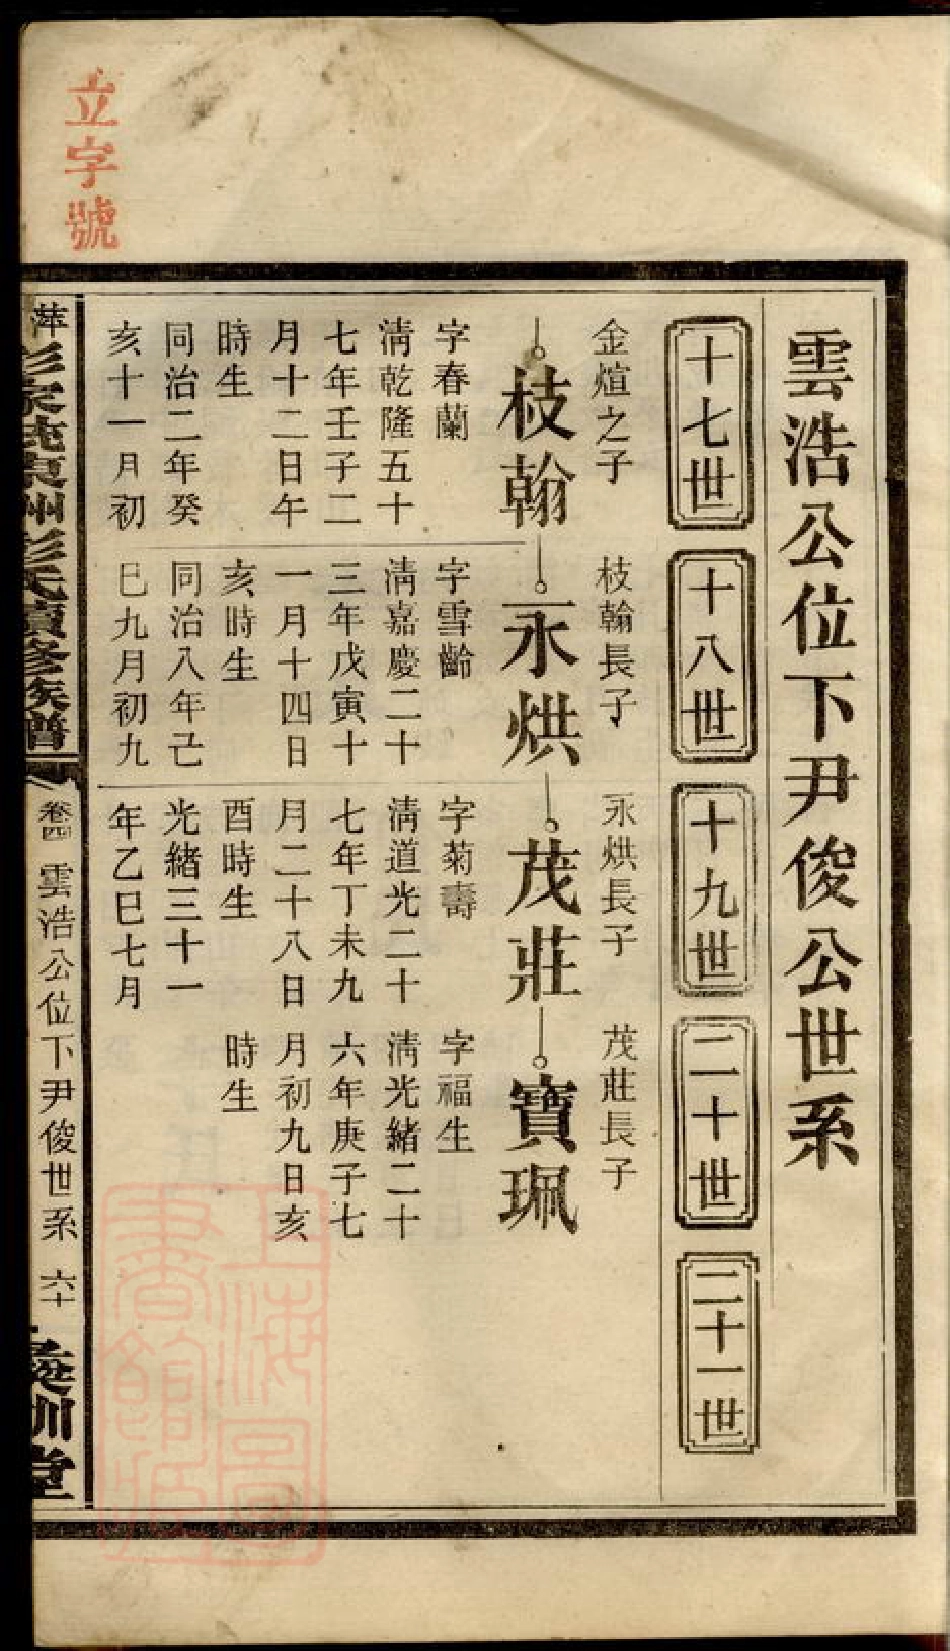 立字號
雲浩公位下尹俊公世系
十七世
十八世
十九世
二十世
二十一世
金煊之子
枝翰長子
永烘長子
茂莊長子
枝翰
永烘
茂莊
寶珮
字春蘭
清乾隆五十
七年壬子二
月十二日午
時生
同治二年癸
亥十一月初
字雪齡
清嘉慶二十
三年戊寅十
一月十四日
亥時生
同治八年己
巳九月初九
字菊壽
清道光二十
七年丁未九
月二十八日
酉時生
光緒三十一
年乙巳七月
字福生
清光緒二十
六年庚子七
月初九日亥
時生
彭氏續修族譜
卷四
雲浩公位下尹俊世系
六十
訓堂
上海圖
書館藏